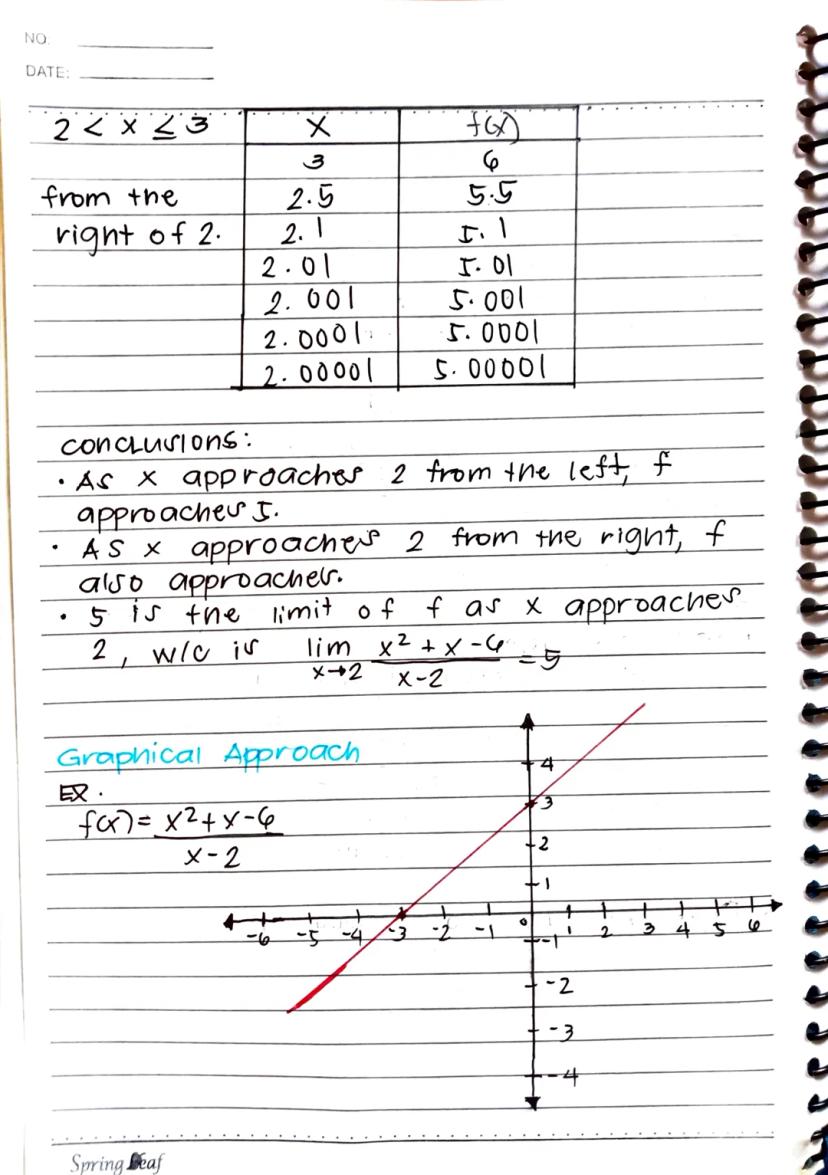 NO.
DATE:
2 < x ≤ 3 x f(x)
3 6
from the 2.5 5.5
right of 2. 2.1 5.1
2.01 5.01
2.001 5.001
2.0001 5.0001
2.00001 5.00001
conclusions:
• As x approaches 2 from the left, f
approaches 5.
• As x approaches 2 from the right, f
also approaches.
• 5 is the limit of f as x approaches
2, w/c is lim x→2 x² + x - 6 / x - 2 = 5
Graphical Approach
Ex.
f(x) = x² + x - 6
x - 2
4
3
2
1
-6 -5 -4 -3 -2 -1 0 1 2 3 4 5 6
-1
-2
-3
-4
Spring Leaf